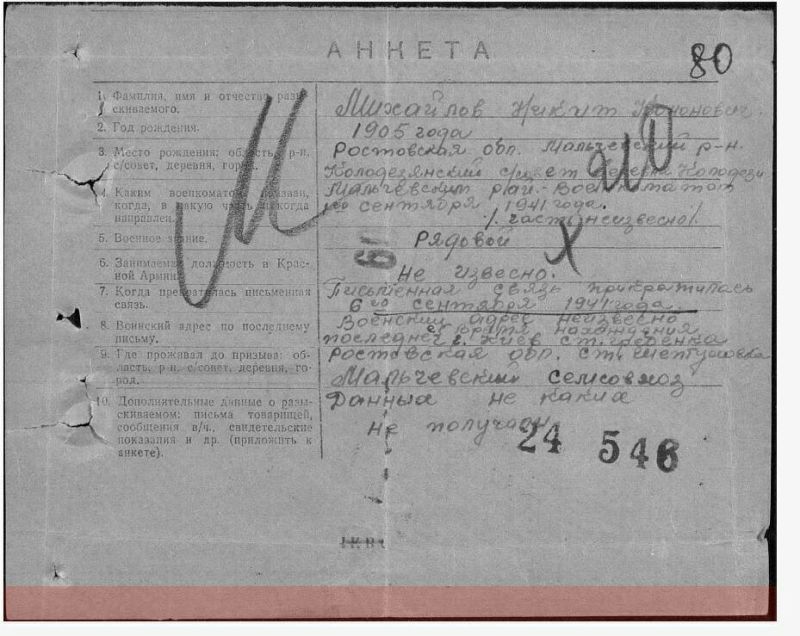 АНКЕТА
80
1. Фамилия, имя и отчество разы-
скиваемого.
Михайлов Никит Кононович
2. Год рождения.
1905 года
3. Место рождения: область, р-н,
с/совет, деревня, город.
Ростовская обл. Мальчевский р-н.
Колодезянский с/совет деревня Колодези
4. Каким военкоматом призван,
когда, в какую часть и когда
направлен.
Мальчевским рай. Военкоматом
сентября 1941 года.
/. часть неизвесно/.
5. Военное звание.
Рядовой
6. Занимаемая должность в Крас-
ной Армии.
не извесно.
7. Когда прекратилась письменная
связь.
Письменная связь прикратилась
6го сентября 1941 года.
8. Воинский адрес по последнему
письму.
Военский адрес неизвесно
последнее время нахождения
г. Киев ст. гребенка
9. Где проживал до призыва: об-
ласть, р-н, с/совет, деревня, го-
род.
Ростовская обл. ст. шептуховка
Мальчевский селисовхоз
10. Дополнительные данные о разы-
скиваемом: письма товарищей,
сообщения в/ч., свидетельские
показания и др. (приложить к
анкете).
Данныа не какиа
не получаен
61
24 546